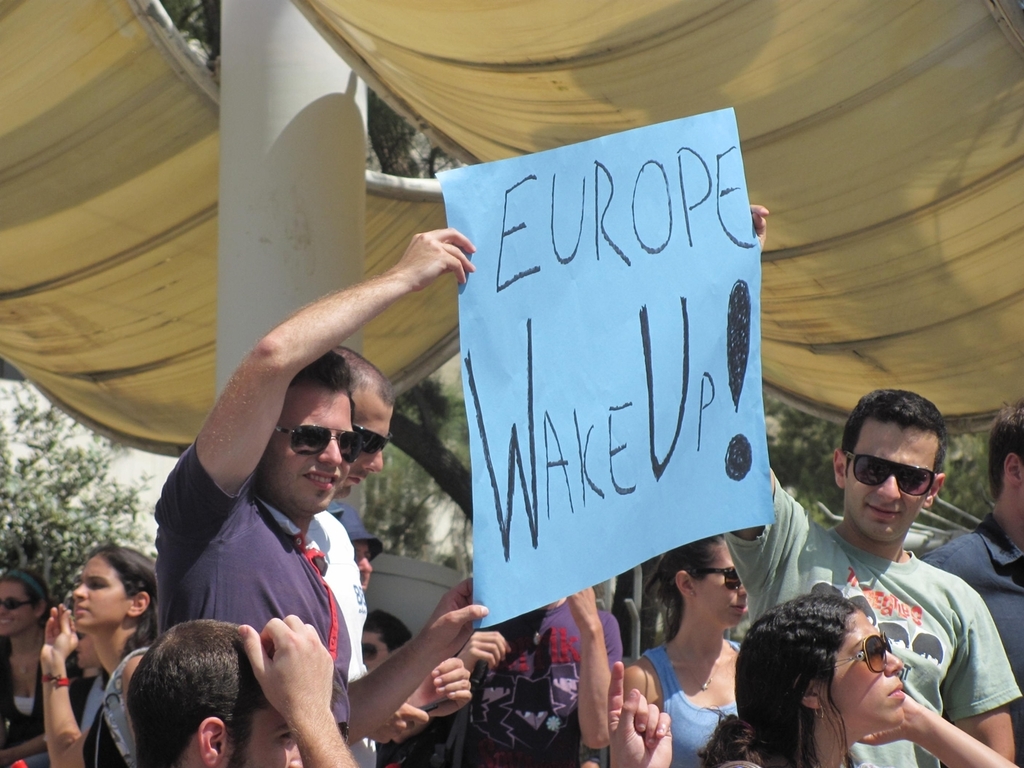 EUROPE
WAKE UP!